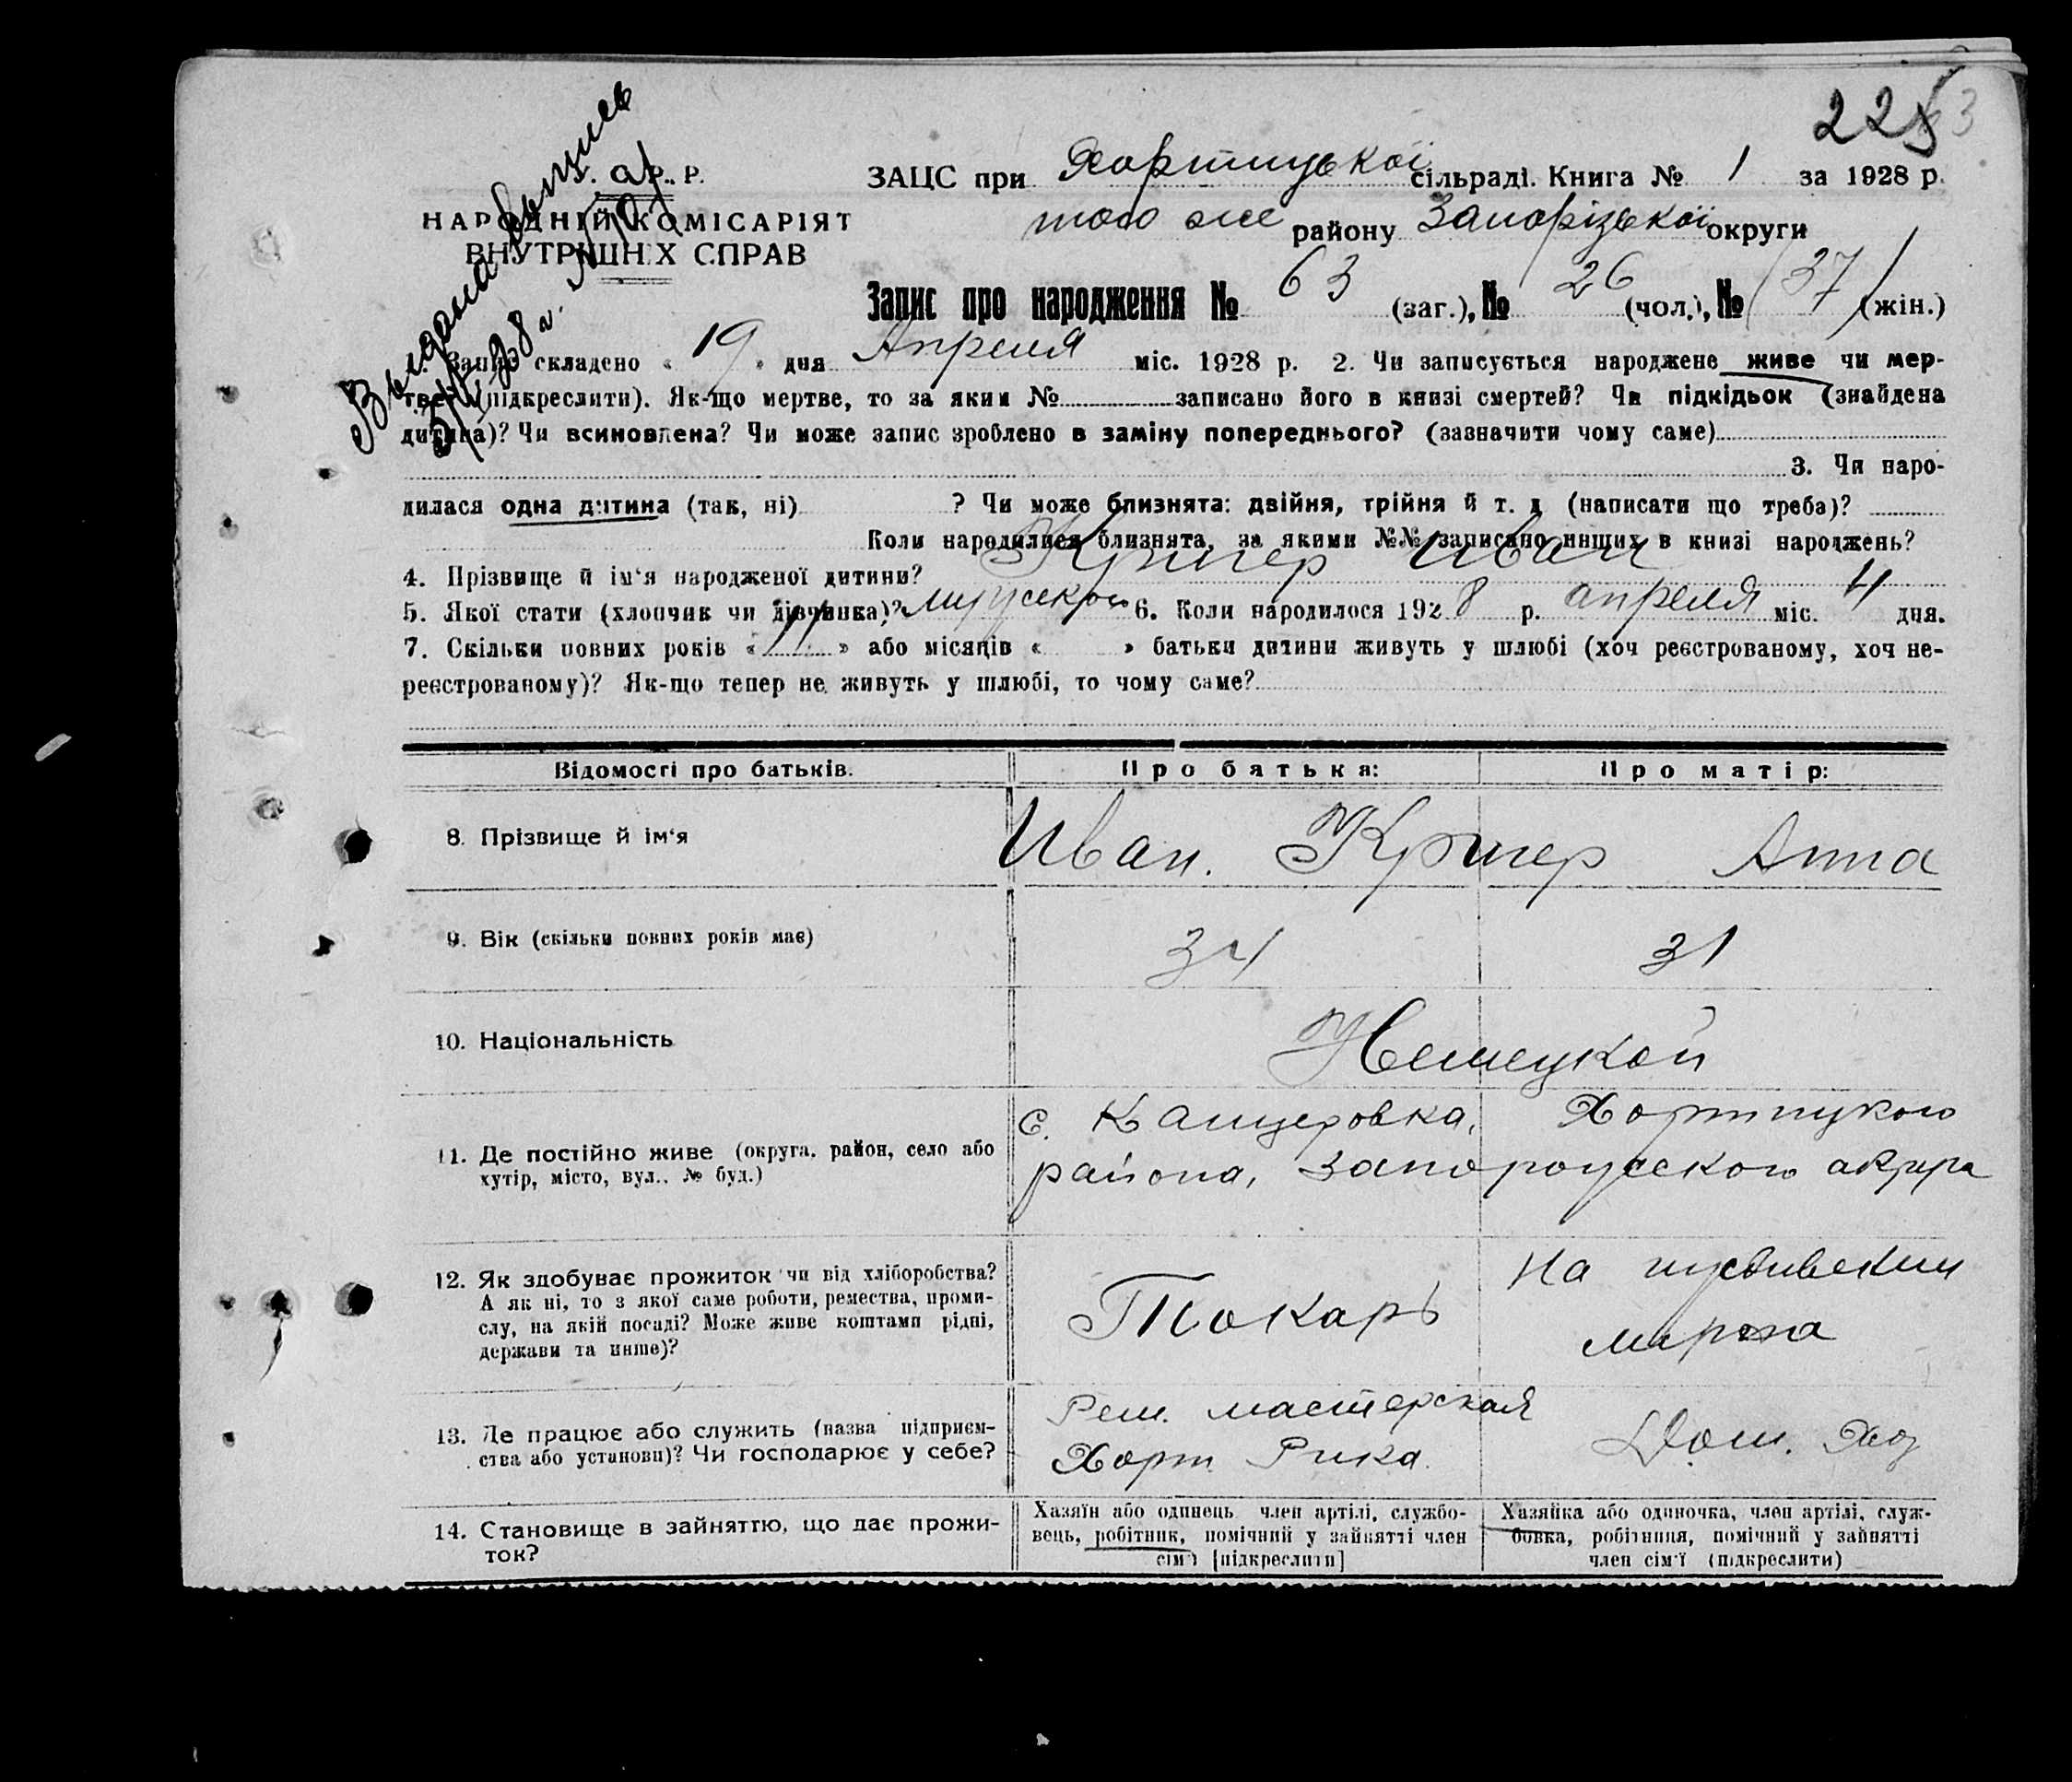 225
Выдана выпись
А. Р. Р.
НАРОДНІЙ КОМІСАРІЯТ
ВНУТРІШНІХ СПРАВ
ЗАЦС при Хортицької сільраді. Книга № 1 за 1928 р.
того же району Запорізької округи
Запис про народження № 63 (заг.), № 26 (чол.), № (37) (жін.)
Запис складено « 19 » дня Апреля міс. 1928 р. 2. Чи записується народжене живе чи мер-
тве (підкреслити). Як-що мертве, то за яким № записано його в книзі смертей? Чи підкідьок (знайдена
дитина)? Чи всиновлена? Чи може запис зроблено в заміну попереднього? (зазначити чому саме)
3. Чи наро-
дилася одна дитина (так, ні) ? Чи може близнята: двійня, трійня й т. д (написати що треба)?
Коли народилися близнята, за якими №№ записано инших в книзі народжень?
4. Прізвище й ім'я народженої дитини? Кригер Иван
5. Якої стати (хлопчик чи дівчинка)? мужской 6. Коли народилося 1928 р. апреля міс. 4 дня.
7. Скільки повних років « 11 » або місяців « » батьки дитини живуть у шлюбі (хоч реєстрованому, хоч не-
реєстрованому)? Як-що тепер не живуть у шлюбі, то чому саме?
Відомості про батьків. Про батька: Про матір:
8. Прізвище й ім'я Иван. Кригер Анна
9. Вік (скільки повних років має) 34 31
10. Національність Немецкой
11. Де постійно живе (округа, район, село або
хутір, місто, вул., № буд.)
с. Канцеровка, Хортицкого
района, Запорожского округа
12. Як здобуває прожиток чи від хліборобства?
А як ні, то з якої саме роботи, ремества, проми-
слу, на якій посаді? Може живе коштами рідні,
держави та инше)?
Токарь
На иждивении
мужа
13. Де працює або служить (назва підприєм-
ства або установи)? Чи господарює у себе?
Рем. мастерская
Хорт. Рика
Дом. Хоз
14. Становище в зайняттю, що дає прожи-
ток?
Хазяїн або одинець член артілі, службо-
вець, робітник, помічний у зайнятті член
сім'ї [підкреслити]
Хазяйка або одиночка, член артілі, служ-
бовка, робітниця, помічний у зайнятті
член сім'ї (підкреслити)